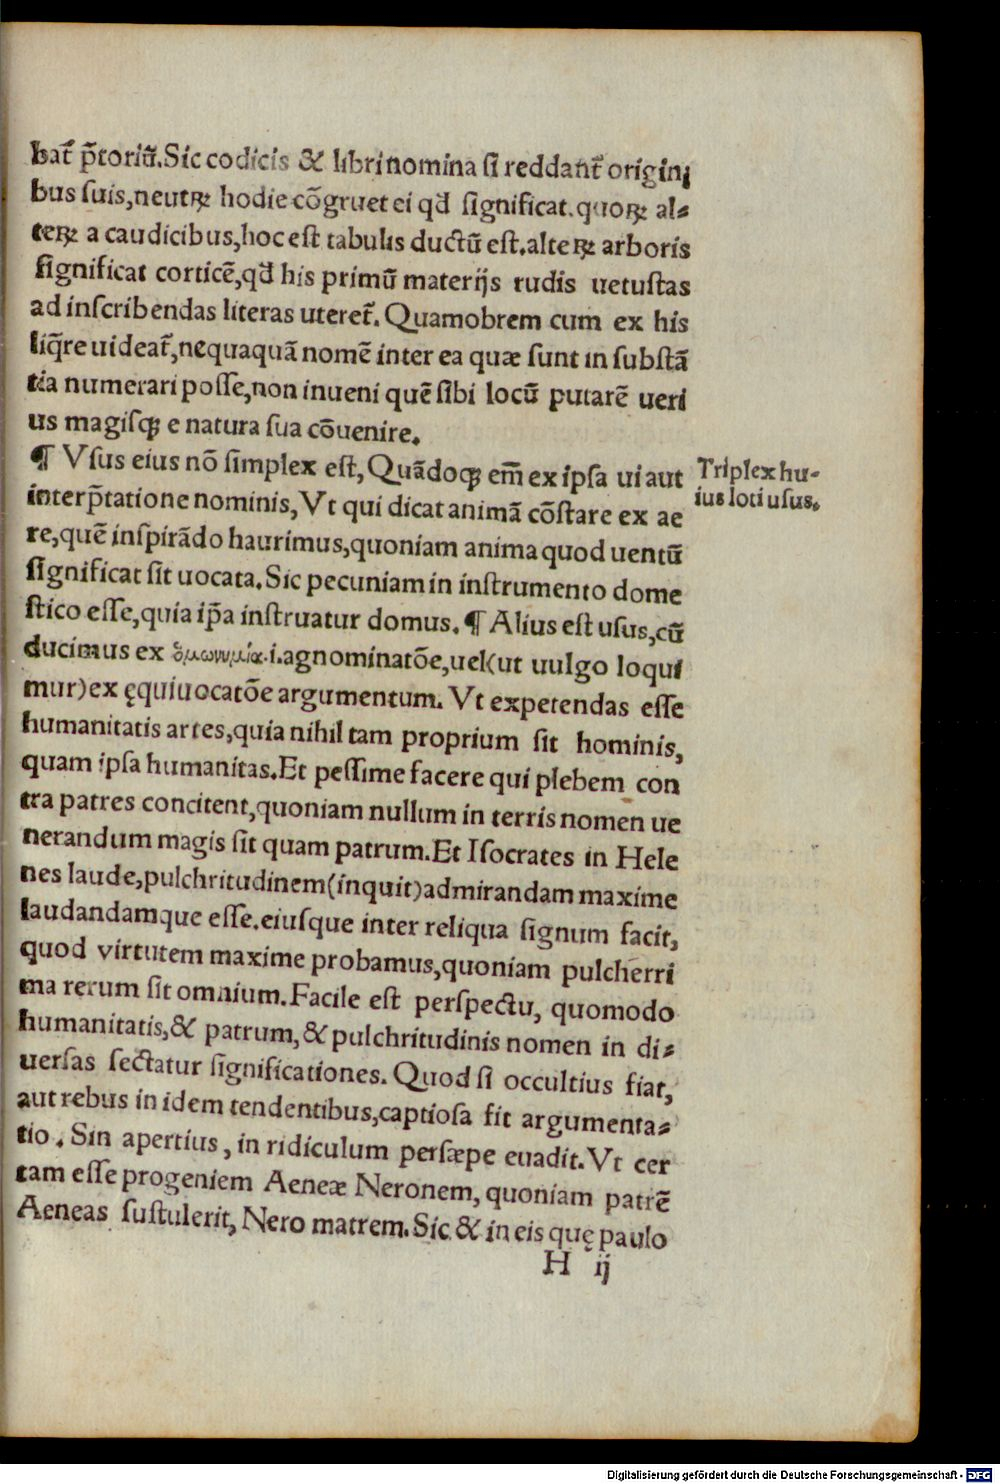 bat᷑ p̄toriū.Sic codicis & libri nomina ſi reddant᷑ origini
bus ſuis,neutꝝ hodie cōgruet ei qd̄ ſignificat.quoꝝ al⸗
teꝝ a caudicibus,hoc eſt tabulis ductū eſt.alteꝝ arboris
ſignificat corticē,qd̄ his primū materijs rudis uetuſtas
ad inſcribendas literas uteret᷑. Quamobrem cum ex his
liq̄re uideat᷑,nequaquā nomē inter ea quæ ſunt in ſubſtā
tia numerari poſſe,non inueni quē ſibi locū putarē ueri
us magiſqꝫ e natura ſua cōuenire.
¶ Vſus eius nō ſimplex eſt, Quādoqꝫ em̄ ex ipſa ui aut
interp̄tatione nominis, Vt qui dicat animā cōſtare ex ae
re,quē inſpirādo haurimus,quoniam anima quod uentū
ſignificat ſit uocata. Sic pecuniam in inſtrumento dome
ſtico eſſe,quia ip̄a inſtruatur domus. ¶ Alius eſt uſus,cū
ducimus ex ὁμωνυμία.i.agnominatōe,uel(ut uulgo loqui
mur)ex ęquiuocatōe argumentum. Vt expetendas eſſe
humanitatis artes,quia nihil tam proprium ſit hominis,
quam ipſa humanitas.Et peſſime facere qui plebem con
tra patres concitent,quoniam nullum in terris nomen ue
nerandum magis ſit quam patrum.Et Iſocrates in Hele
nes laude,pulchritudinem(inquit)admirandam maxime
laudandamque eſſe.eiuſque inter reliqua ſignum facit,
quod virtutem maxime probamus,quoniam pulcherri
ma rerum ſit omnium.Facile eſt perſpectu, quomodo
humanitatis,& patrum,& pulchritudinis nomen in di⸗
uerſas ſectatur ſignificationes. Quod ſi occultius fiat,
aut rebus in idem tendentibus,captioſa fit argumenta⸗
tio. Sin apertius, in ridiculum perſæpe euadit.Vt cer
tam eſſe progeniem Aeneæ Neronem, quoniam patrē
Aeneas ſuſtulerit, Nero matrem.Sic & in eis quę paulo
H ij
Triplex hu-
ius loci uſus.
Digitalisierung gefördert durch die Deutsche Forschungsgemeinschaft - DFG